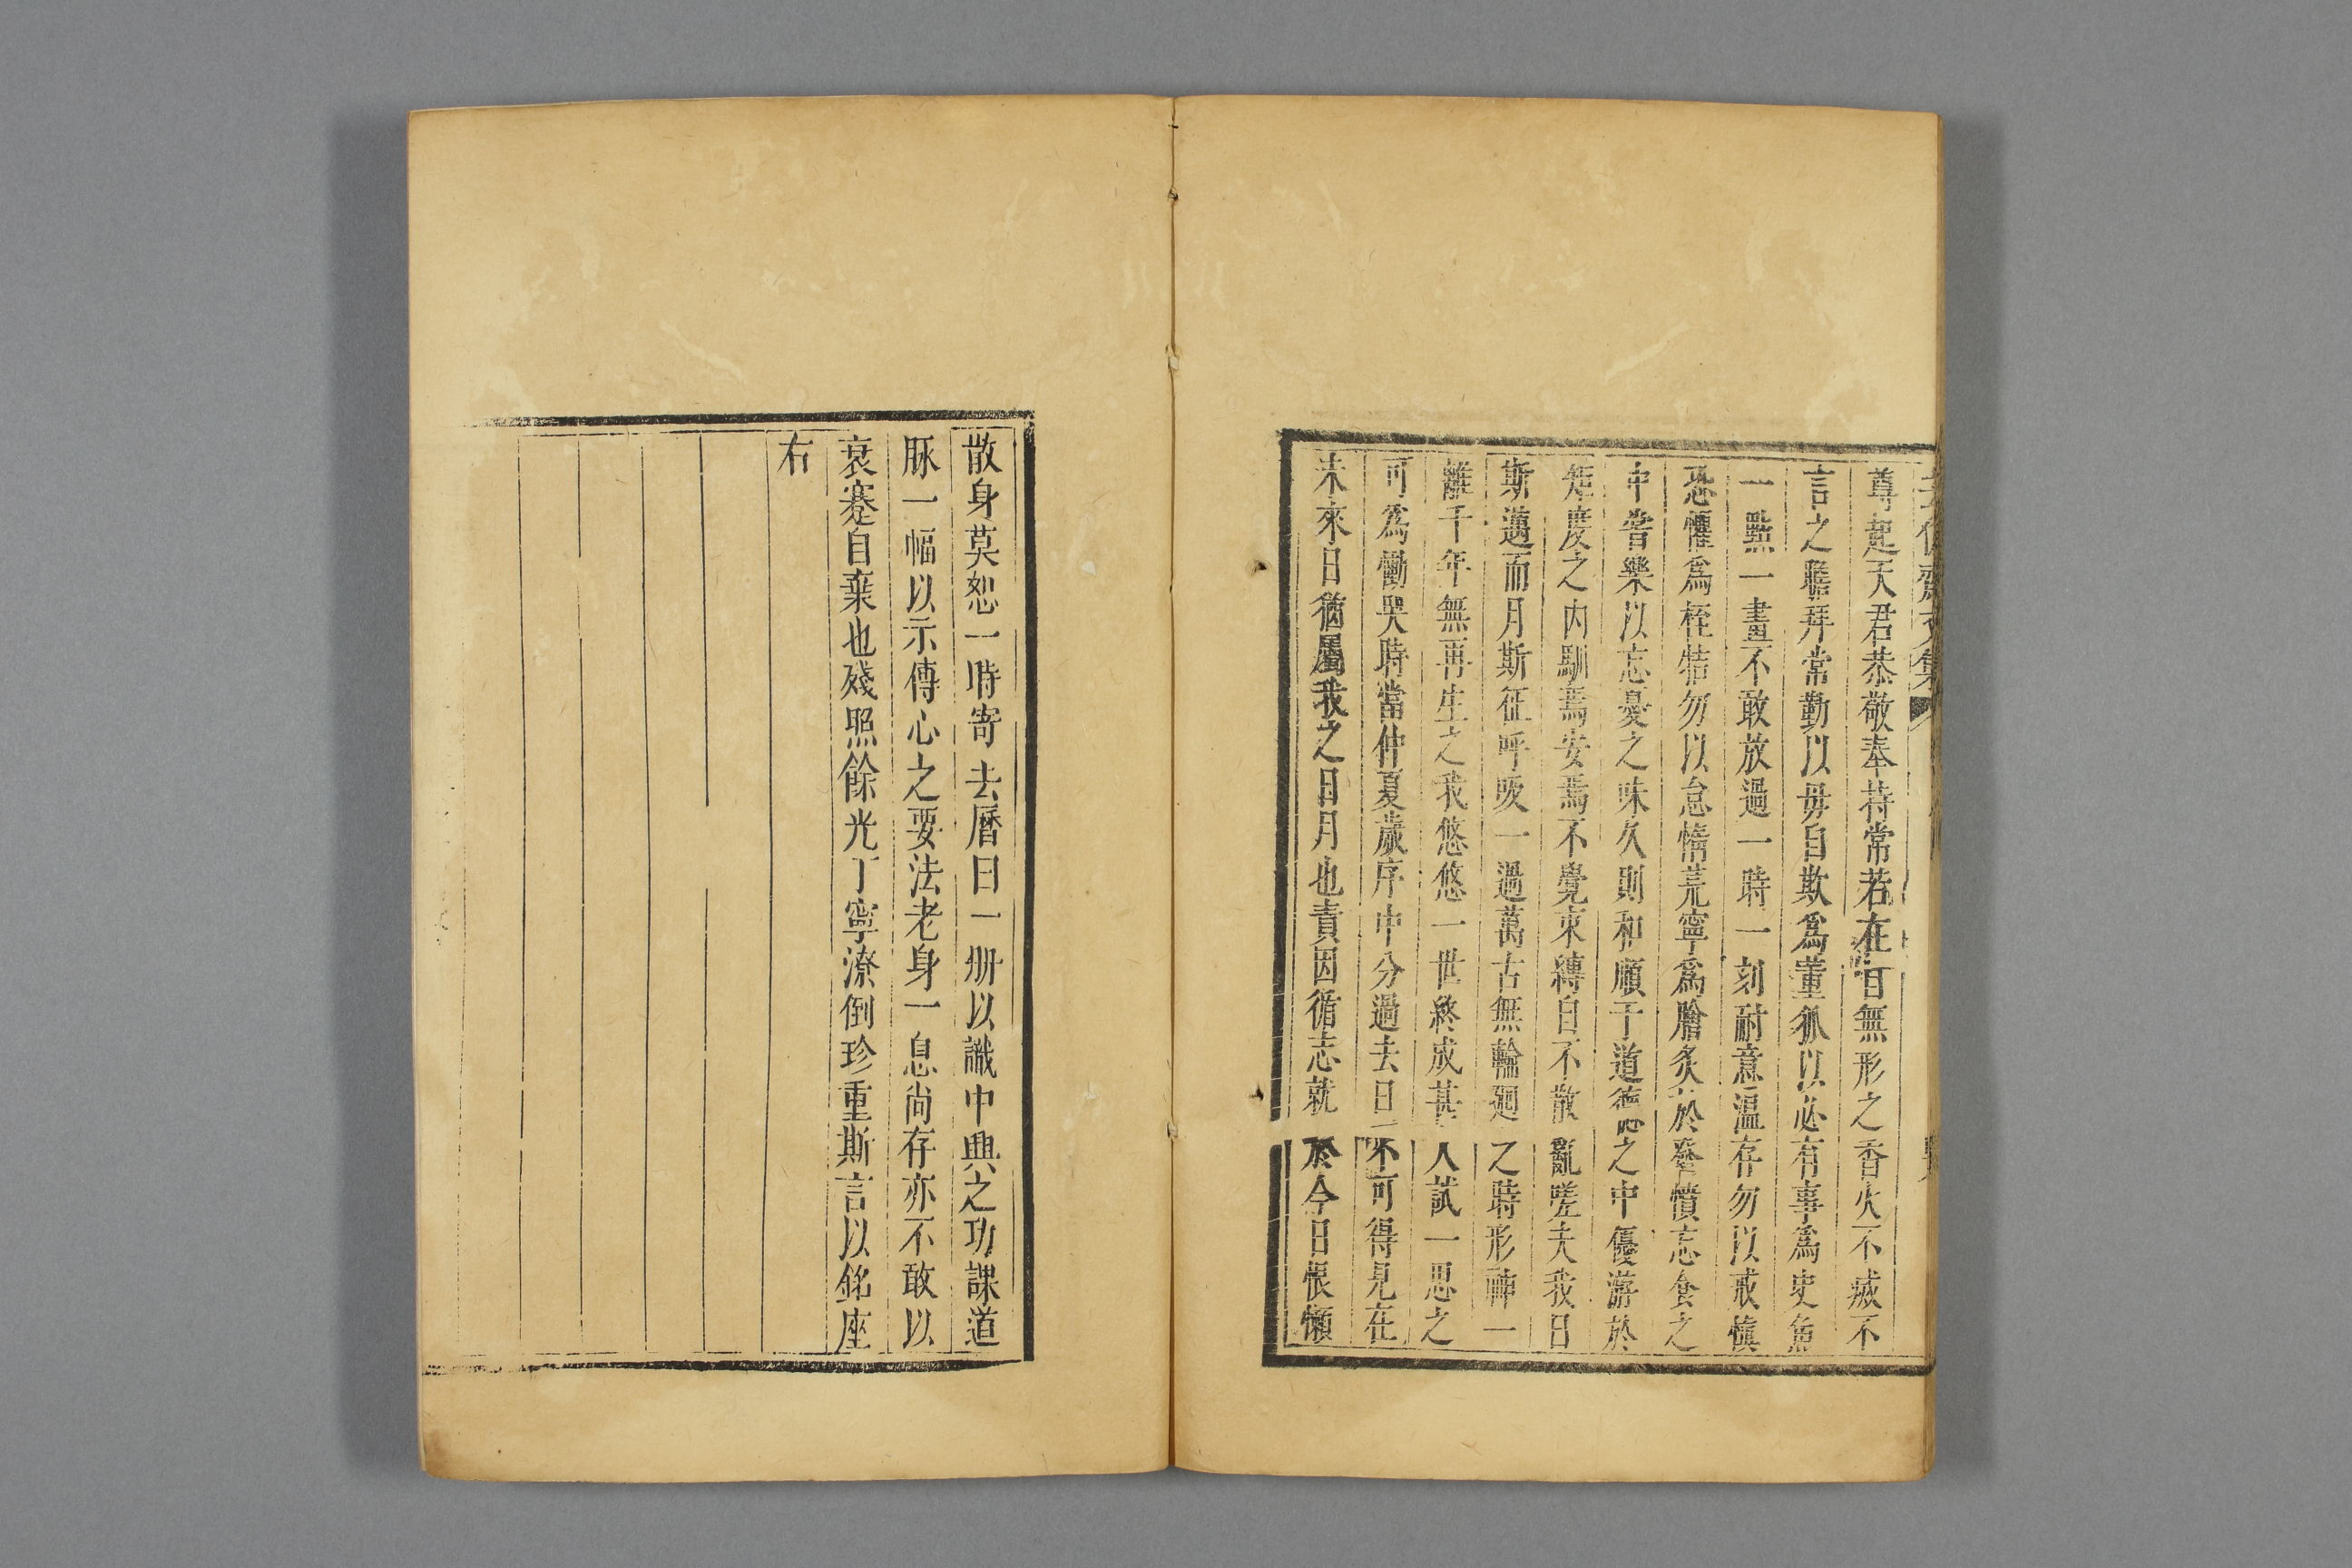 尊起天君恭敬奉持常若在百無形之香火不痰不
言之聽拜常勤以毋自欺爲董狐以必有事爲史魚
一點一畫不敢放過一時一刻耐意温存勿以戒慎
恐懼爲桎梏勿以怠惰荒寧爲膾炙於發憤忘食之
中嘗樂以忘憂之味久則和順于道德之中優游於
矩度之内馴焉安焉不覺束縛自不散亂嗟夫我日
斯邁而月斯征呼吸一過萬古無輪廻之時形神一
離千年無再生之我悠悠一世終成甚人試一思之
可爲慟哭時當仲夏歲序中分過去日不可得見在
未來日猶屬我之日月也責因循志就於今日悵懶
散身莫恕一時寄去曆日一册以識中興之功課道
脉一幅以示傳心之要法老身一息尚存亦不敢以
衰蹇自棄也殘照餘光丁寧潦倒珍重斯言以銘座
右